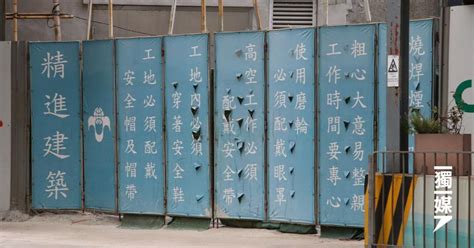 燒焊煙
粗心大意易整親
工作時間要專心
使用磨輪
必須配戴眼罩
高空工作必須
配戴安全帶
工地內必須
穿著安全鞋
工地必須配戴
安全帽及帽帶
精進建築
獨媒